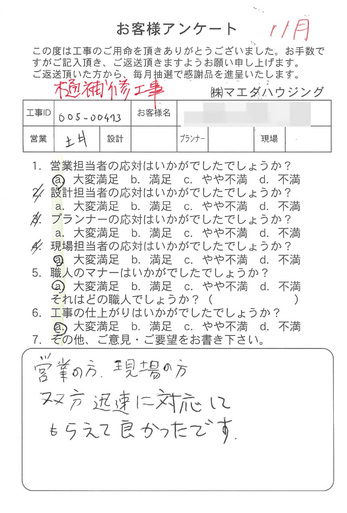 お客様アンケート 11月
この度は工事のご用命を頂きありがとうございました。お手数で
すがご記入頂き、ご返送頂きますようお願い申し上げます。
ご返送頂いた方から、毎月抽選で感謝品を進呈いたします。
樋補修工事 ㈱マエダハウジング
工事ID 005-00473 お客様名
営業 土井 設計 プランナー 現場
1. 営業担当者の応対はいかがでしたでしょうか？
a. 大変満足 b. 満足 c. やや不満 d. 不満
2. 設計担当者の応対はいかがでしたでしょうか？
a. 大変満足 b. 満足 c. やや不満 d. 不満
3. プランナーの応対はいかがでしたでしょうか？
a. 大変満足 b. 満足 c. やや不満 d. 不満
4. 現場担当者の応対はいかがでしたでしょうか？
a. 大変満足 b. 満足 c. やや不満 d. 不満
5. 職人のマナーはいかがでしたでしょうか？
a. 大変満足 b. 満足 c. やや不満 d. 不満
それはどの職人でしょうか？（ ）
6. 工事の仕上がりはいかがでしたでしょうか？
a. 大変満足 b. 満足 c. やや不満 d. 不満
7. その他、ご意見・ご要望をお書き下さい。
営業の方、現場の方
双方迅速に対応して
もらえて良かったです.